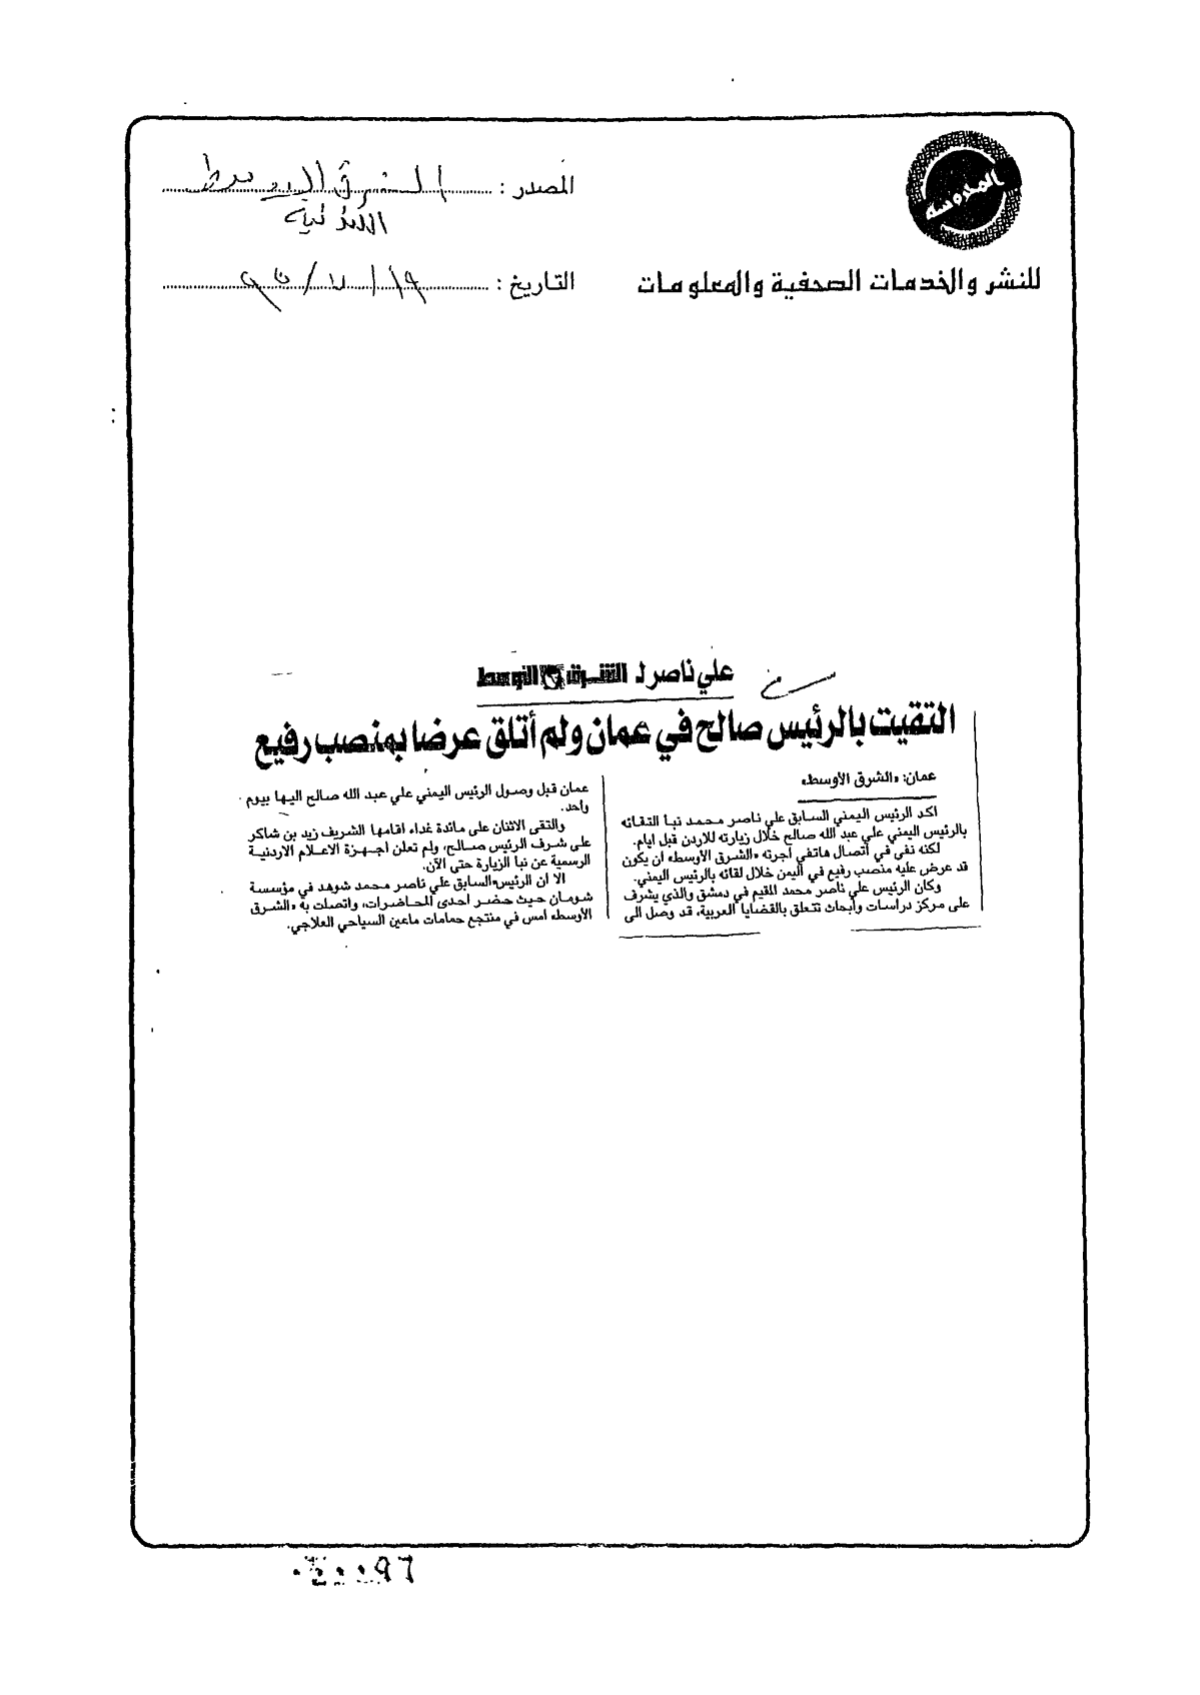 المحروسة
للنشر والخدمات الصحفية والمعلومات
المصدر : الشرق الاوسط
اللندنية
التاريخ : ١٩ / ٧ / ٩٥
علي ناصر لـ الشرق الأوسط
التقيت بالرئيس صالح في عمان ولم أتلق عرضا بمنصب رفيع
عمان: «الشرق الأوسط»
اكد الرئيس اليمني السابق علي ناصر محمد نبا التقائه
بالرئيس اليمني علي عبد الله صالح خلال زيارته للاردن قبل ايام.
لكنه نفى في اتصال هاتفي اجرته «الشرق الأوسط» ان يكون
قد عرض عليه منصب رفيع في اليمن خلال لقائه بالرئيس اليمني.
وكان الرئيس علي ناصر محمد المقيم في دمشق والذي يشرف
على مركز دراسات وأبحاث تتعلق بالقضايا العربية، قد وصل الى
عمان قبل وصول الرئيس اليمني علي عبد الله صالح اليها بيوم
واحد.
والتقى الاثنان على مائدة غداء اقامها الشريف زيد بن شاكر
على شرف الرئيس صالح، ولم تعلن اجهزة الاعلام الاردنية
الرسمية عن نبا الزيارة حتى الآن.
الا ان الرئيس السابق علي ناصر محمد شوهد في مؤسسة
شومان حيث حضر احدى المحاضرات، واتصلت به «الشرق
الأوسط» امس في منتجع حمامات ماعين السياحي العلاجي.